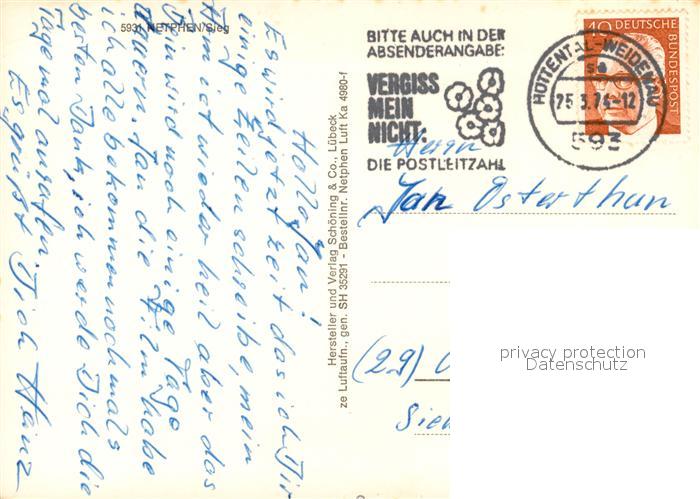 5931 NETPHEN/Sieg
Hallo Jan!
Es wird jetzt Zeit das ich Dir
einige Zeilen schreibe, mein
Arm ist wieder heil aber das
wird noch einige Tage
dauern. Jan die Filme habe
ich alle bekommen nochmals
besten Dank, ich werde Dich die
Tage mal anrufen.
Es grüßt Dich Heinz
Hersteller und Verlag Schöning & Co., Lübeck
ze Luftaufn., gen. SH 35291 - Bestellnr. Netphen Luft Ka 4980-f
BITTE AUCH IN DER
ABSENDERANGABE:
VERGISS
MEIN
NICHT:
DIE POSTLEITZAHL
HÜTTENTAL-WEIDENAU
sa
25.3.74-12
593
40 DEUTSCHE
BUNDESPOST
Herrn
Jan Osterthun
(29)
privacy protection
Datenschutz